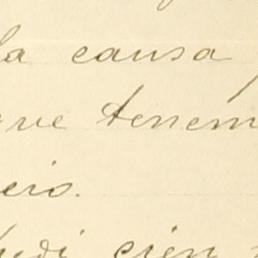 la causa
que tenem
eio.
pedi cien